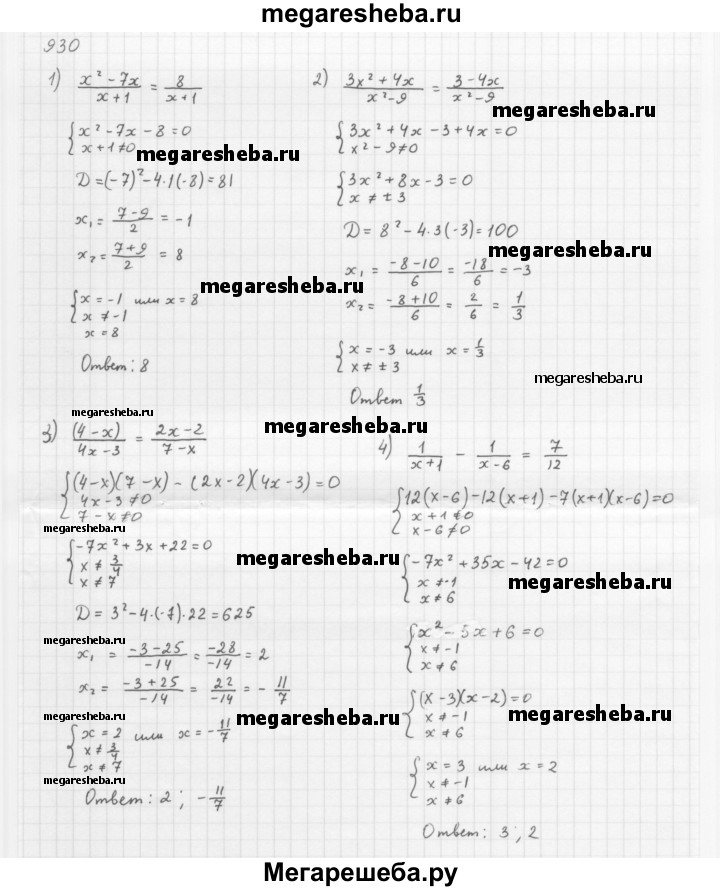 megaresheba.ru
930
1) (x² - 7x)/(x + 1) = 8/(x + 1)
{ x² - 7x - 8 = 0
x + 1 ≠ 0
megaresheba.ru
D = (-7)² - 4·1(-8) = 81
x₁ = (7 - 9)/2 = -1
x₂ = (7 + 9)/2 = 8
megaresheba.ru
{ x = -1 или x = 8
x ≠ -1
x = 8
Ответ: 8
2) (3x² + 4x)/(x² - 9) = (3 - 4x)/(x² - 9)
megaresheba.ru
{ 3x² + 4x - 3 + 4x = 0
x² - 9 ≠ 0
{ 3x² + 8x - 3 = 0
x ≠ ± 3
D = 8² - 4·3(-3) = 100
megaresheba.ru
x₁ = (-8 - 10)/6 = -18/6 = -3
x₂ = (-8 + 10)/6 = 2/6 = 1/3
{ x = -3 или x = 1/3
x ≠ ± 3
megaresheba.ru
Ответ 1/3
megaresheba.ru
megaresheba.ru
3) (4 - x)/(4x - 3) = (2x - 2)/(7 - x)
{ (4 - x)(7 - x) - (2x - 2)(4x - 3) = 0
4x - 3 ≠ 0
7 - x ≠ 0
megaresheba.ru
{ -7x² + 3x + 22 = 0
x ≠ 3/4
x ≠ 7
megaresheba.ru
D = 3² - 4·(-7)·22 = 625
megaresheba.ru
x₁ = (-3 - 25)/-14 = -28/-14 = 2
x₂ = (-3 + 25)/-14 = 22/-14 = - 11/7
megaresheba.ru
megaresheba.ru
{ x = 2 или x = - 11/7
x ≠ 3/4
x ≠ 7
megaresheba.ru
Ответ: 2 ; - 11/7
4) 1/(x + 1) - 1/(x - 6) = 7/12
{ 12(x - 6) - 12(x + 1) - 7(x + 1)(x - 6) = 0
x + 1 ≠ 0
x - 6 ≠ 0
megaresheba.ru
{ -7x² + 35x - 42 = 0
x ≠ -1
x ≠ 6
megaresheba.ru
{ x² - 5x + 6 = 0
x ≠ -1
x ≠ 6
{ (x - 3)(x - 2) = 0
x ≠ -1
x ≠ 6
megaresheba.ru
{ x = 3 или x = 2
x ≠ -1
x ≠ 6
Ответ: 3 ; 2
Мегарешеба.ру